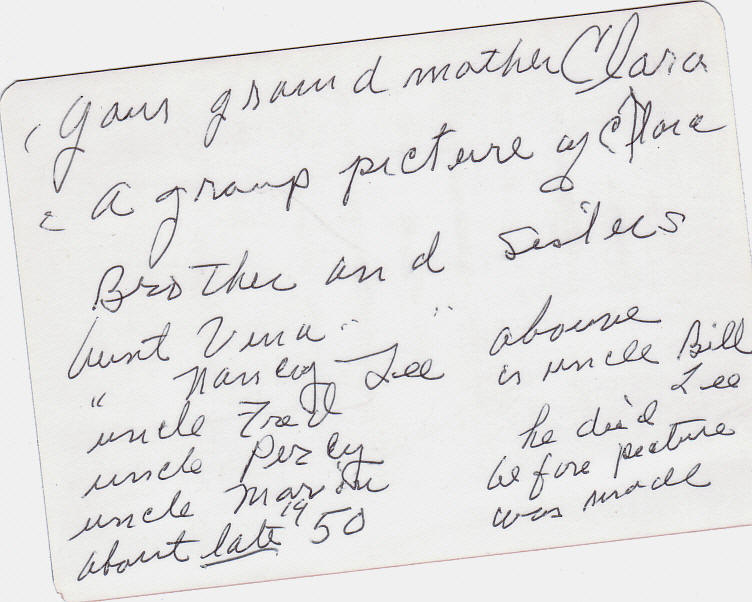 your grand mother Clara
A group picture of Clara
Brother and sisters
Aunt Vena " "
" Nancy Lee
uncle Fred
uncle Percy
uncle
about late 19 50
above
is uncle Bill
Lee
he died
before picture
was made